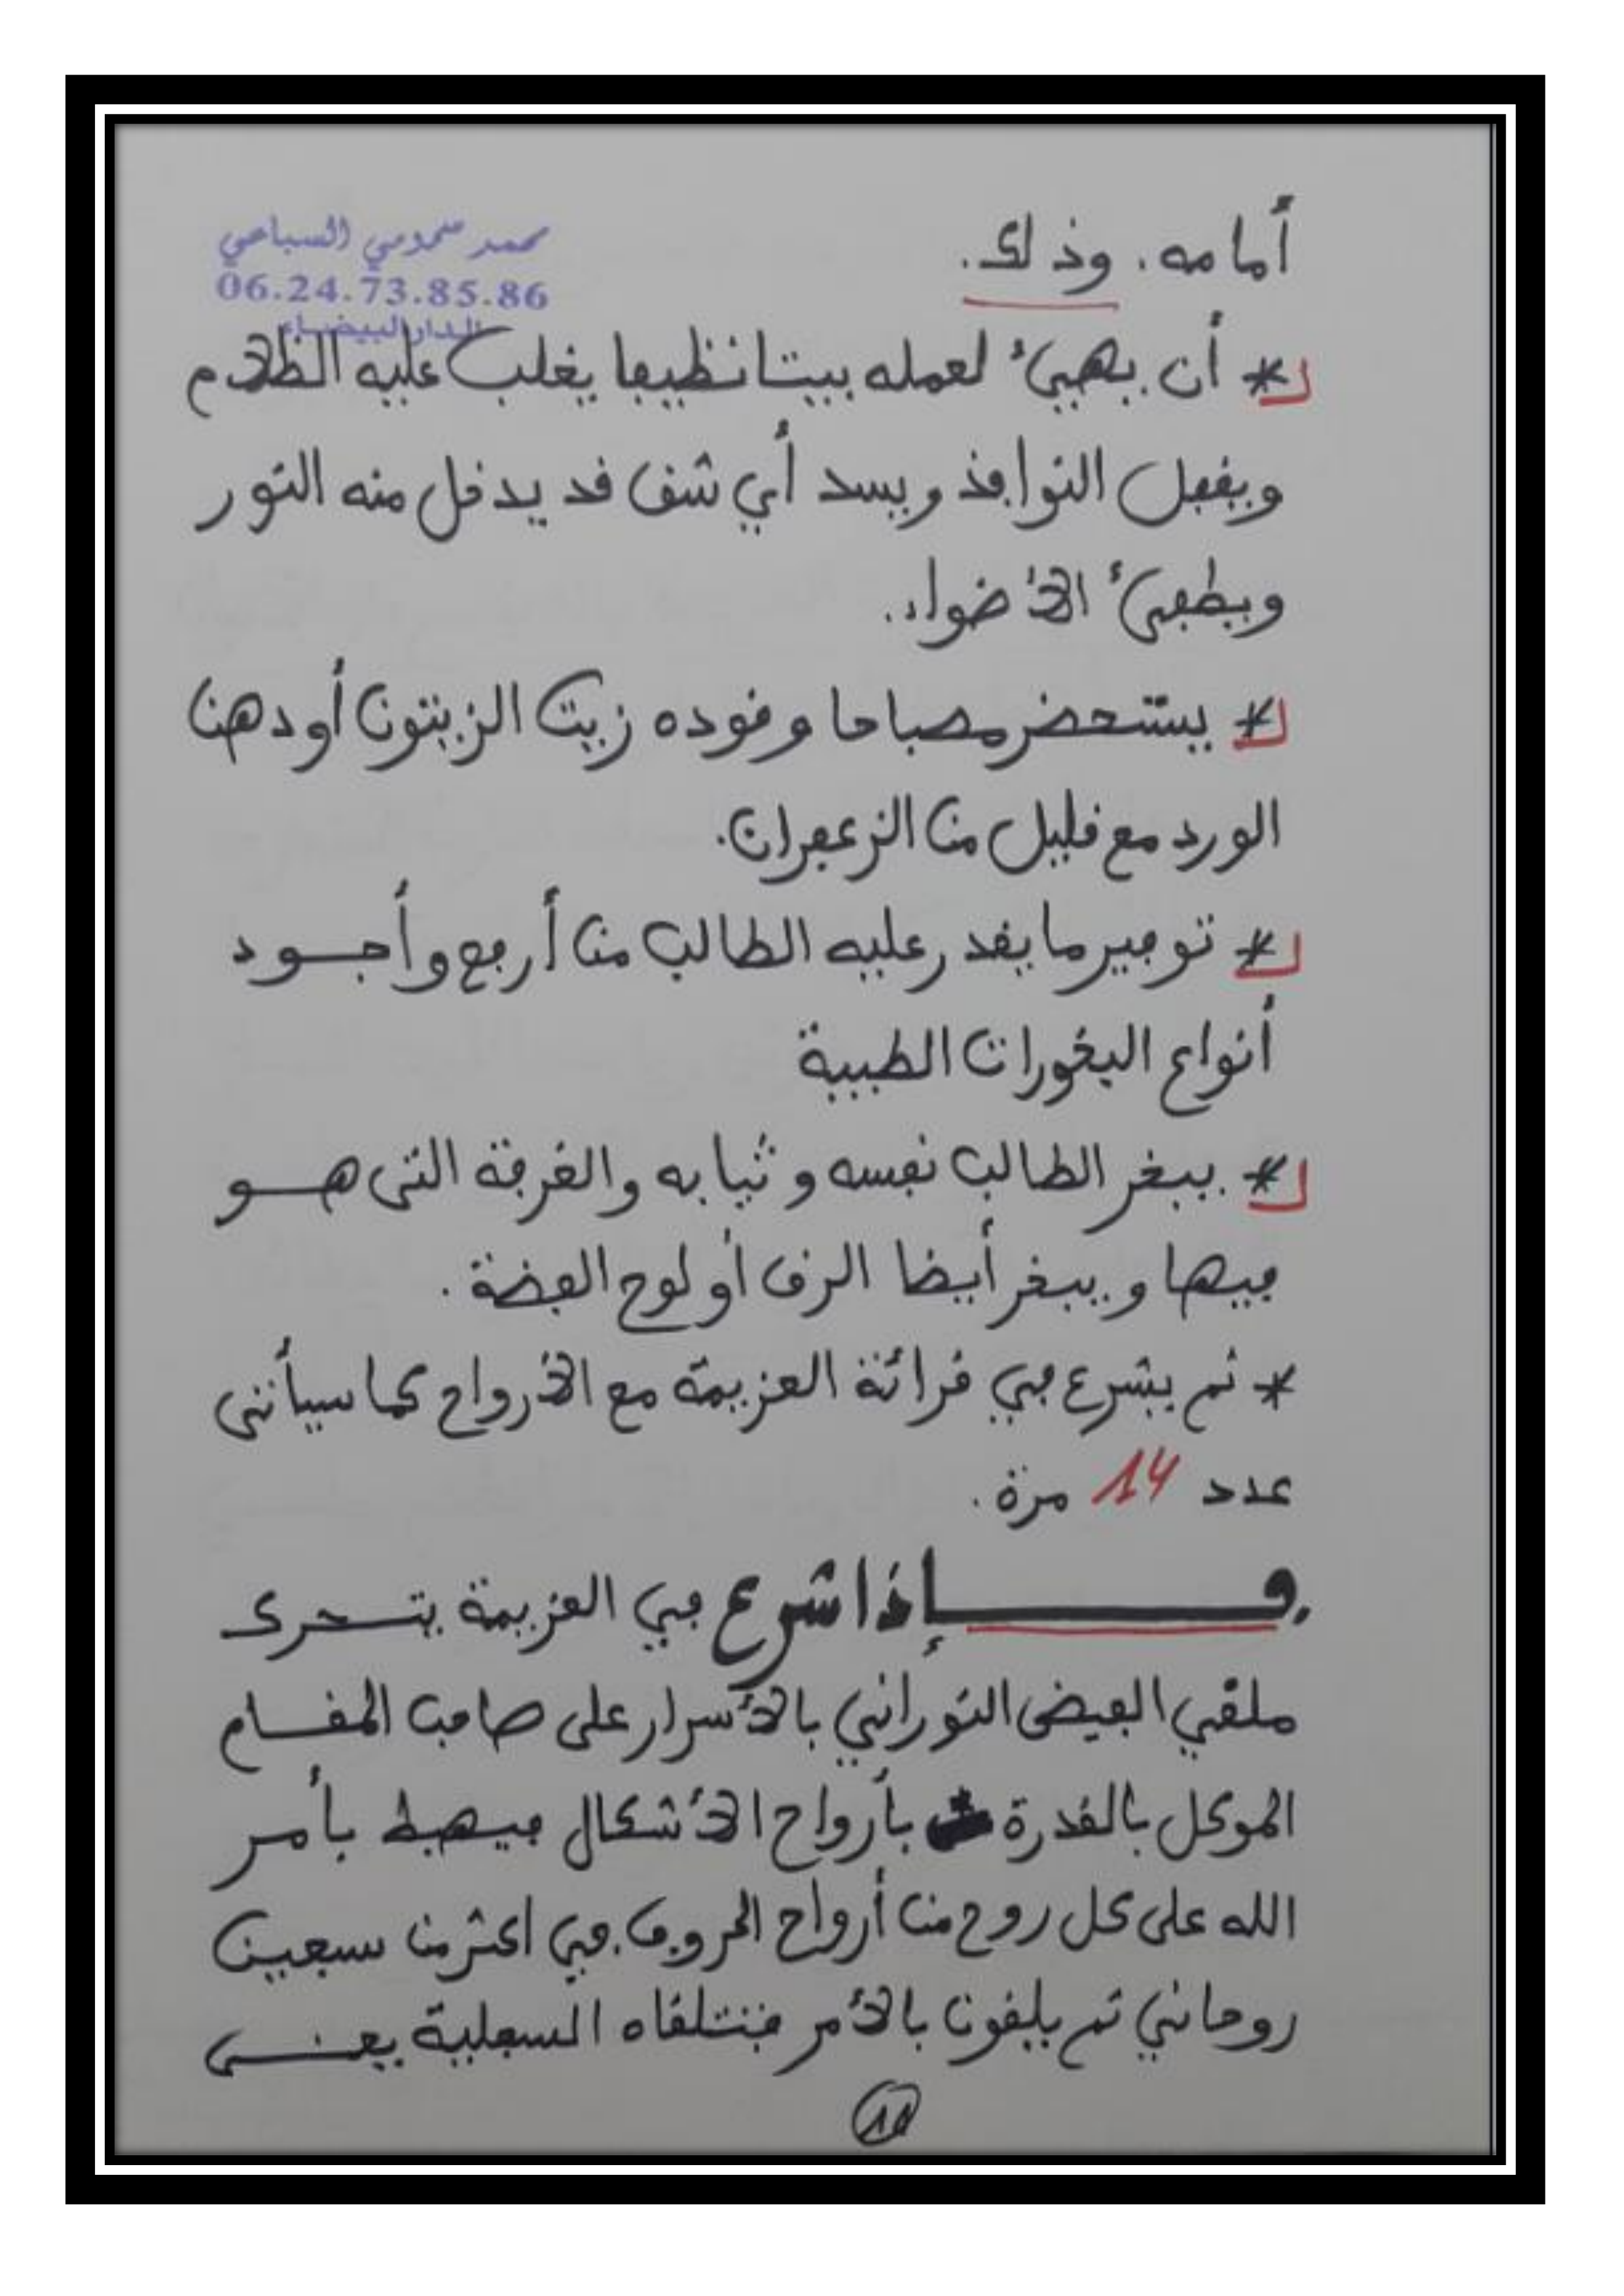 أمامه. وذلك.
محمد صمومي السباعي
06.24.73.85.86
الدار البيضاء
* أن يهيئ لعمله بيتا نظيفا يغلب عليه الظلام
ويقفل النوافذ ويسد أي شق قد يدخل منه النور
ويطفئ الأضواء.
* يستحضر مصباحا وقوده زيت الزيتون أو دهن
الورد مع قليل من الزعفران.
* توفير ما يقدر عليه الطالب من أرفع وأجود
أنواع البخورات الطيبة
* يبخر الطالب نفسه وثيابه والغرفة التى هو
فيها ويبخر أيضا الرق أو لوح الفضة.
* ثم يشرع في قرائة العزيمة مع الأرواح كما سيأتى
عدد 14 مرة.
فإذا شرع في العزيمة يتحرك
ملقي الفيض النوراني بالأسرار على صاحب المقام
الموكل بالقدرة بأرواح الأشكال فيهبط بأمر
الله على كل روح من أرواح الحروف في اكثر من سبعين
روحاني ثم يلقون بالأمر فتتلقاه السفلية يعنى